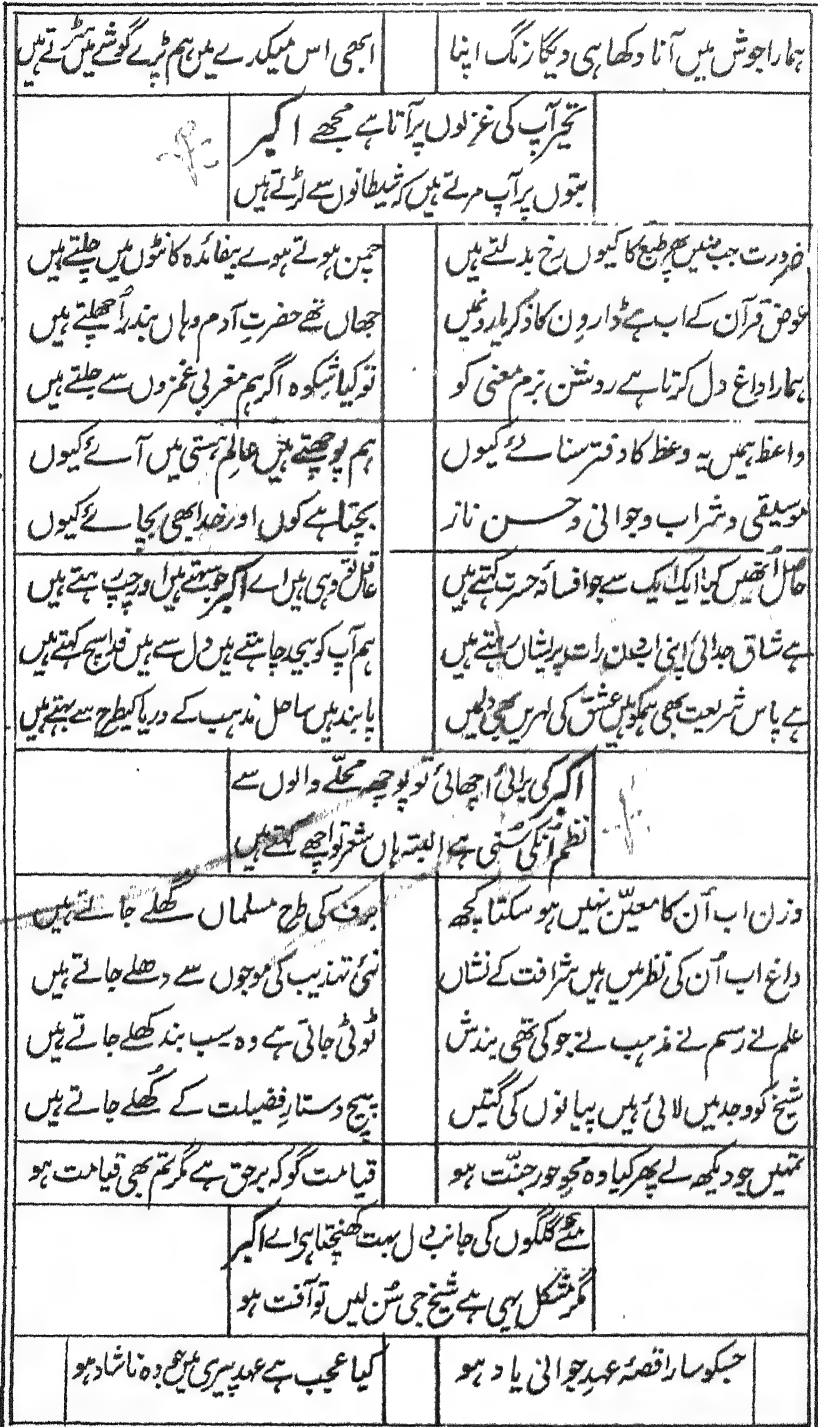 ہمارا جوش میں آنا دکھا ہی دیگا رنگ اپنا ابھی اس میکدے میں ہم پڑے گوشے میں سڑتے ہیں
تحیر آپ کی غزلوں پر آتا ہے مجھے اکبر
بتوں پر آپ مرتے ہیں کہ شیطانوں سے لڑتے ہیں
ضرورت جب نہیں پھر طبع کا کیوں رخ بدلتے ہیں چمن ہوتے ہوے بیفائدہ کانٹوں میں چلتے ہیں
عوض قرآن کے اب ہے ڈارون کا ذکر یارونمیں جہاں تھے حضرتِ آدم وہاں بندر اُچھلتے ہیں
ہمارا داغ دل کرتا ہے روشن بزم معنی کو تو کیا شکوہ اگر ہم مغربی غمزوں سے جلتے ہیں
واعظ ہمیں یہ وعظ کا دفتر سنائے کیوں ہم پوچھتے ہیں عالمِ ہستی میں آئے کیوں
موسیقی و شراب و جوانی و حسن ناز بچتا ہے کون اور خدا بھی بچائے کیوں
حاصل اُنھیں کیا ایک ایک سے جو افسانۂ حسرت کہتے ہیں عاقل تو وہی ہیں اے اکبر جو سہتے ہیں اور چپ رہتے ہیں
ہے شاق جدائی اپنی اب دن رات پریشاں رہتے ہیں ہم آپ کو بیحد چاہتے ہیں دل سے ہیں فدا سچ کہتے ہیں
ہے پاس شریعت بھی ہمکو ہیں عشق کی لہریں بھی دلمیں پابند ہیں ساحل مذہب کے دریا کیطرح سے بہتے ہیں
اکبر کی برائی اچھائی تو پوچھ محلّے والوں سے
نظم اُنکی سُنی ہے البتہ ہاں شعر تو اچھے کہتے ہیں
وزن اب اُن کا معیّن نہیں ہو سکتا کچھ برف کی طرح مسلماں گھلے جاتے ہیں
داغ اب اُن کی نظر میں ہیں شرافت کے نشاں نئی تہذیب کی موجوں سے دھلے جاتے ہیں
علم نے رسم نے مذہب نے جو کی تھی بندش ٹوٹی جاتی ہے وہ سب بند کھلے جاتے ہیں
شیخ کو وجد میں لائی ہیں پیانوں کی گتیں پیچ دستارِ فضیلت کے کُھلے جاتے ہیں
تمہیں جو دیکھ لے پھر کیا وہ محوِ حورِ جنّت ہو قیامت گو کہ برحق ہے مگر تم بھی قیامت ہو
مئے گلگوں کی جانب دل بہت کھنچتا ہے اے اکبر
مگر مشکل یہی ہے شیخ جی سُن لیں تو آفت ہو
جسکو سارا قصۂ عہدِ جوانی یاد ہو کیا عجب ہے عہد پیری میں جو وہ ناشاد ہو